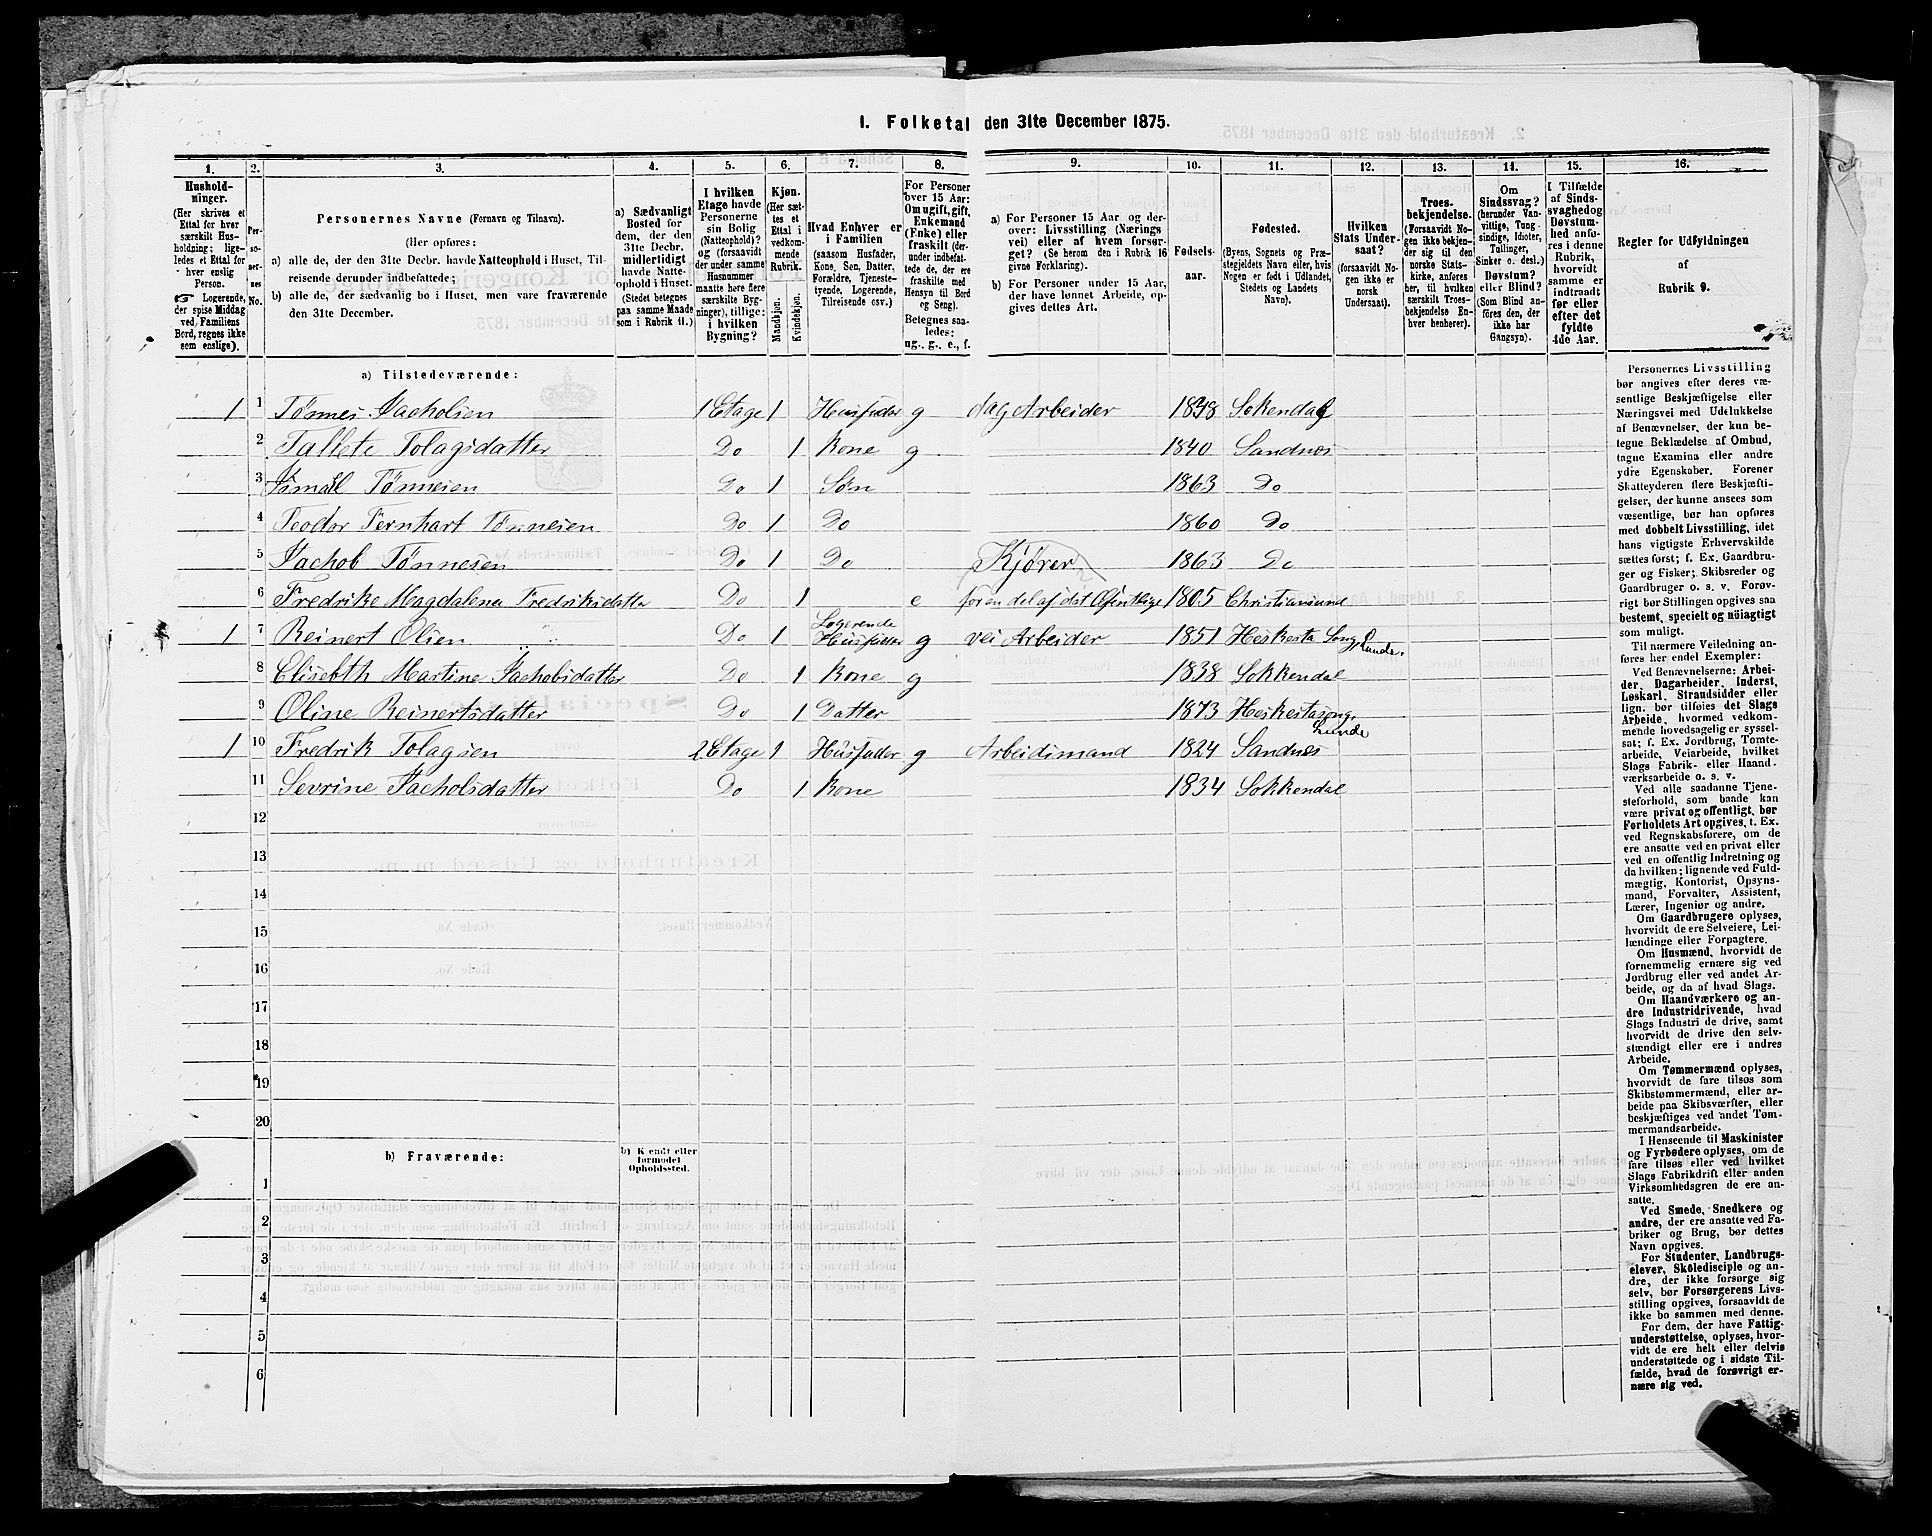 1. Folketal den 31te December 1875.
1. 2. 3. 4. 5. 6. 7. 8. 9. 10. 11. 12. 13. 14. 15. 16.
Husholdninger.
(Her skrives et Ettal for hver særskilt Husholdning; ligeledes et Ettal for hver enslig Person.
☞ Logerende, der spise Middag ved Familiens Bord, regnes ikke som enslige).
Personernes No.
Personernes Navne (Fornavn og Tilnavn).
(Her opføres:
a) alle de, der den 31te Decbr. havde Natteophold i Huset, Tilreisende derunder indbefattede;
b) alle de, der sædvanlig bo i Huset, men vare fraværende den 31te December.
a) Sædvanligt Bosted for dem, der den 31te Decbr. midlertidigt havde Natteophold i Huset. (Stedet betegnes paa samme Maade som i Rubrik 11.)
I hvilken Etage havde Personerne sin Bolig (Natteophold)? og (forsaavidt der under samme Husnummer maatte høre flere særskilte Bygninger), tillige: i hvilken Bygning?
Kjøn. (Her sættes et Ettal i vedkommende Rubrik.
Mandkjøn. Kvindekjøn.
Hvad Enhver er i Familien (saasom Husfader, Kone, Søn, Datter, Forældre, Tjenestetyende, Logerende, Tilreisende osv.)
For Personer over 15 Aar: Om ugift, gift, Enkemand (Enke) eller fraskilt (derunder indbefattede de, der ere fraskilte med Hensyn til Bord og Seng).
Betegnes saaledes: ug., g., e., f.
a) For Personer 15 Aar og derover: Livsstilling (Næringsvei) eller af hvem forsørget? (Se herom den i Rubrik 16 givne Forklaring).
b) For Personer under 15 Aar, der have lønnet Arbeide, opgives dettes Art.
Fødselsaar.
Fødested. (Byens, Sognets og Præstegjeldets Navn eller, hvis Nogen er født i Udlandet, Stedets og Landets Navn).
Hvilken Stats Undersaat? (forsaavidt Nogen ikke er norsk Undersaat).
Troesbekjendelse. (Forsaavidt Nogen ikke bekjender sig til den norske Statskirke, anføres her, til hvilken særskilt Troesbekjendelse Enhver henhører).
Om Sindssvag? (herunder Vanvittige, Tungsindige, Idioter, Tullinger, Sinker o. desl.) Døvstum? eller Blind? (Som Blind anføres den, der ikke har Gangsyn).
I Tilfælde af Sindssvaghed og Døvstumhed anføres i denne Rubrik, hvorvidt samme er indtraadt før eller efter det fyldte 4de Aar.
Regler for Udfyldningen af Rubrik 9.
a) Tilstedeværende:
1 1 Tønnes Jachobsen 1 Etage 1 Husfader g dag Arbeider 1838 Sokendal
2 Tallete Tolagsdatter Do 1 Kone g 1840 Sandnes
3 Ismall Tønnesen Do 1 Søn 1863 Do
4 Teodor Bernhart Tønnesen Do 1 Do 1860 Do
5 Jachob Tønnesen Do 1 Do Kjører 1863 Do
6 Fredrike Magdalena Fredriksdatter Do 1 e for en del af det Ofentlige 1805 Christiansund
1 7 Reinert Olsen Do 1 Logerende Husfader g vei Arbeider 1851 Heskesta Song, Lunde.
8 Elisebth Martine Jachobsdatter Do 1 Kone g 1838 Sokkendal
9 Oline Reinertsdatter Do 1 Datter 1873 Heskestasong, Lunde
1 10 Fredrik Tolagsen 2 Etage 1 Husfader g Arbeidsmand 1824 Sandnes
11 Sevrine Jacholsdatter Do 1 Kone 1834 Sokkendal
12
13
14
15
16
17
18
19
20
b) Fraværende:
b) Kendt eller formodet Opholdssted.
1
2
3
4
5
6
Personernes Livsstilling
bør angives efter deres væ-
sentlige Beskjæftigelse eller
Næringsvei med Udelukkelse
af Benævnelser, der kun be-
tegne Beklædelse af Ombud,
tagne Examina eller andre
ydre Egenskaber. Forener
Skatteyderen flere Beskjæfti-
gelser, der kunne ansees som
væsentlige, bør han opføres
med dobbelt Livsstilling, idet
hans vigtigste Erhvervskilde
sættes først; f. Ex. Gaardbru-
ger og Fisker; Skibsreder og
Gaardbruger o. s. v. Forøv-
rigt bør Stillingen opgives saa
bestemt, specielt og nøiagtigt
som muligt.
Til nærmere Veiledning an-
føres her endel Exempler:
Ved Benævnelserne: Arbei-
der, Dagarbeider, Inderst,
Løskarl, Strandsidder eller
lign. bør tilføies det Slags
Arbeide, hvormed vedkom-
mende hovedsagelig er syssel-
sat; f. Ex. Jordbrug, Tomte-
arbeide, Veiarbeide, hvilket
Slags Fabrik- eller Haand-
værksarbeide o. s. v.
Ved alle saadanne Tjene-
steforhold, som baade kan
være privat og offentligt, bør
Forholdets Art opgives, t. Ex.
ved Regnskabsførere, om de
ere ansatte ved en privat eller
ved en offentlig Indretning og
da hvilken; lignende ved Fuld-
mægtig, Kontorist, Opsyns-
mand, Forvalter, Assistent,
Lærer, Ingeniør og andre.
Om Gaardbrugere oplyses,
hvorvidt de ere Selveiere, Lei-
lændinge eller Forpagtere.
Om Husmænd, hvorvidt de
fornemmelig ernære sig ved
Jordbrug eller ved andet Ar-
beide, og da af hvad Slags.
Om Haandværkere og an-
dre Industridrivende, hvad
Slags Industri de drive, samt
hvorvidt de drive den selv-
stændigt eller ere i andres
Arbeide.
Om Tømmermænd oplyses,
hvorvidt de fare tilsøs som
Skibstømmermænd, eller ar-
beide paa Skibsværfter, eller
beskjæftiges ved andet Tøm-
mermandsarbeide.
I Henseende til Maskinister
og Fyrbødere oplyses, om de
fare tilsøs eller ved hvilket
Slags Fabrikdrift eller anden
Virksomhedsgren de ere an-
satte.
Ved Smede, Snedkere og
andre, der ere ansatte ved Fa-
briker og Brug, bør dettes
Navn opgives.
For Studenter, Landbrugs-
elever, Skoledisciple og an-
dre, der ikke forsørge sig
selv, bør Forsørgerens Livs-
stilling opgives, forsaavidt de
ikke bo sammen med denne.
For dem, der have Fattig-
understøttelse, oplyses, hvor-
vidt de ere helt eller delvis
understøttede og i sidste Til-
fælde, hvad de forøvrigt er-
nære sig ved.